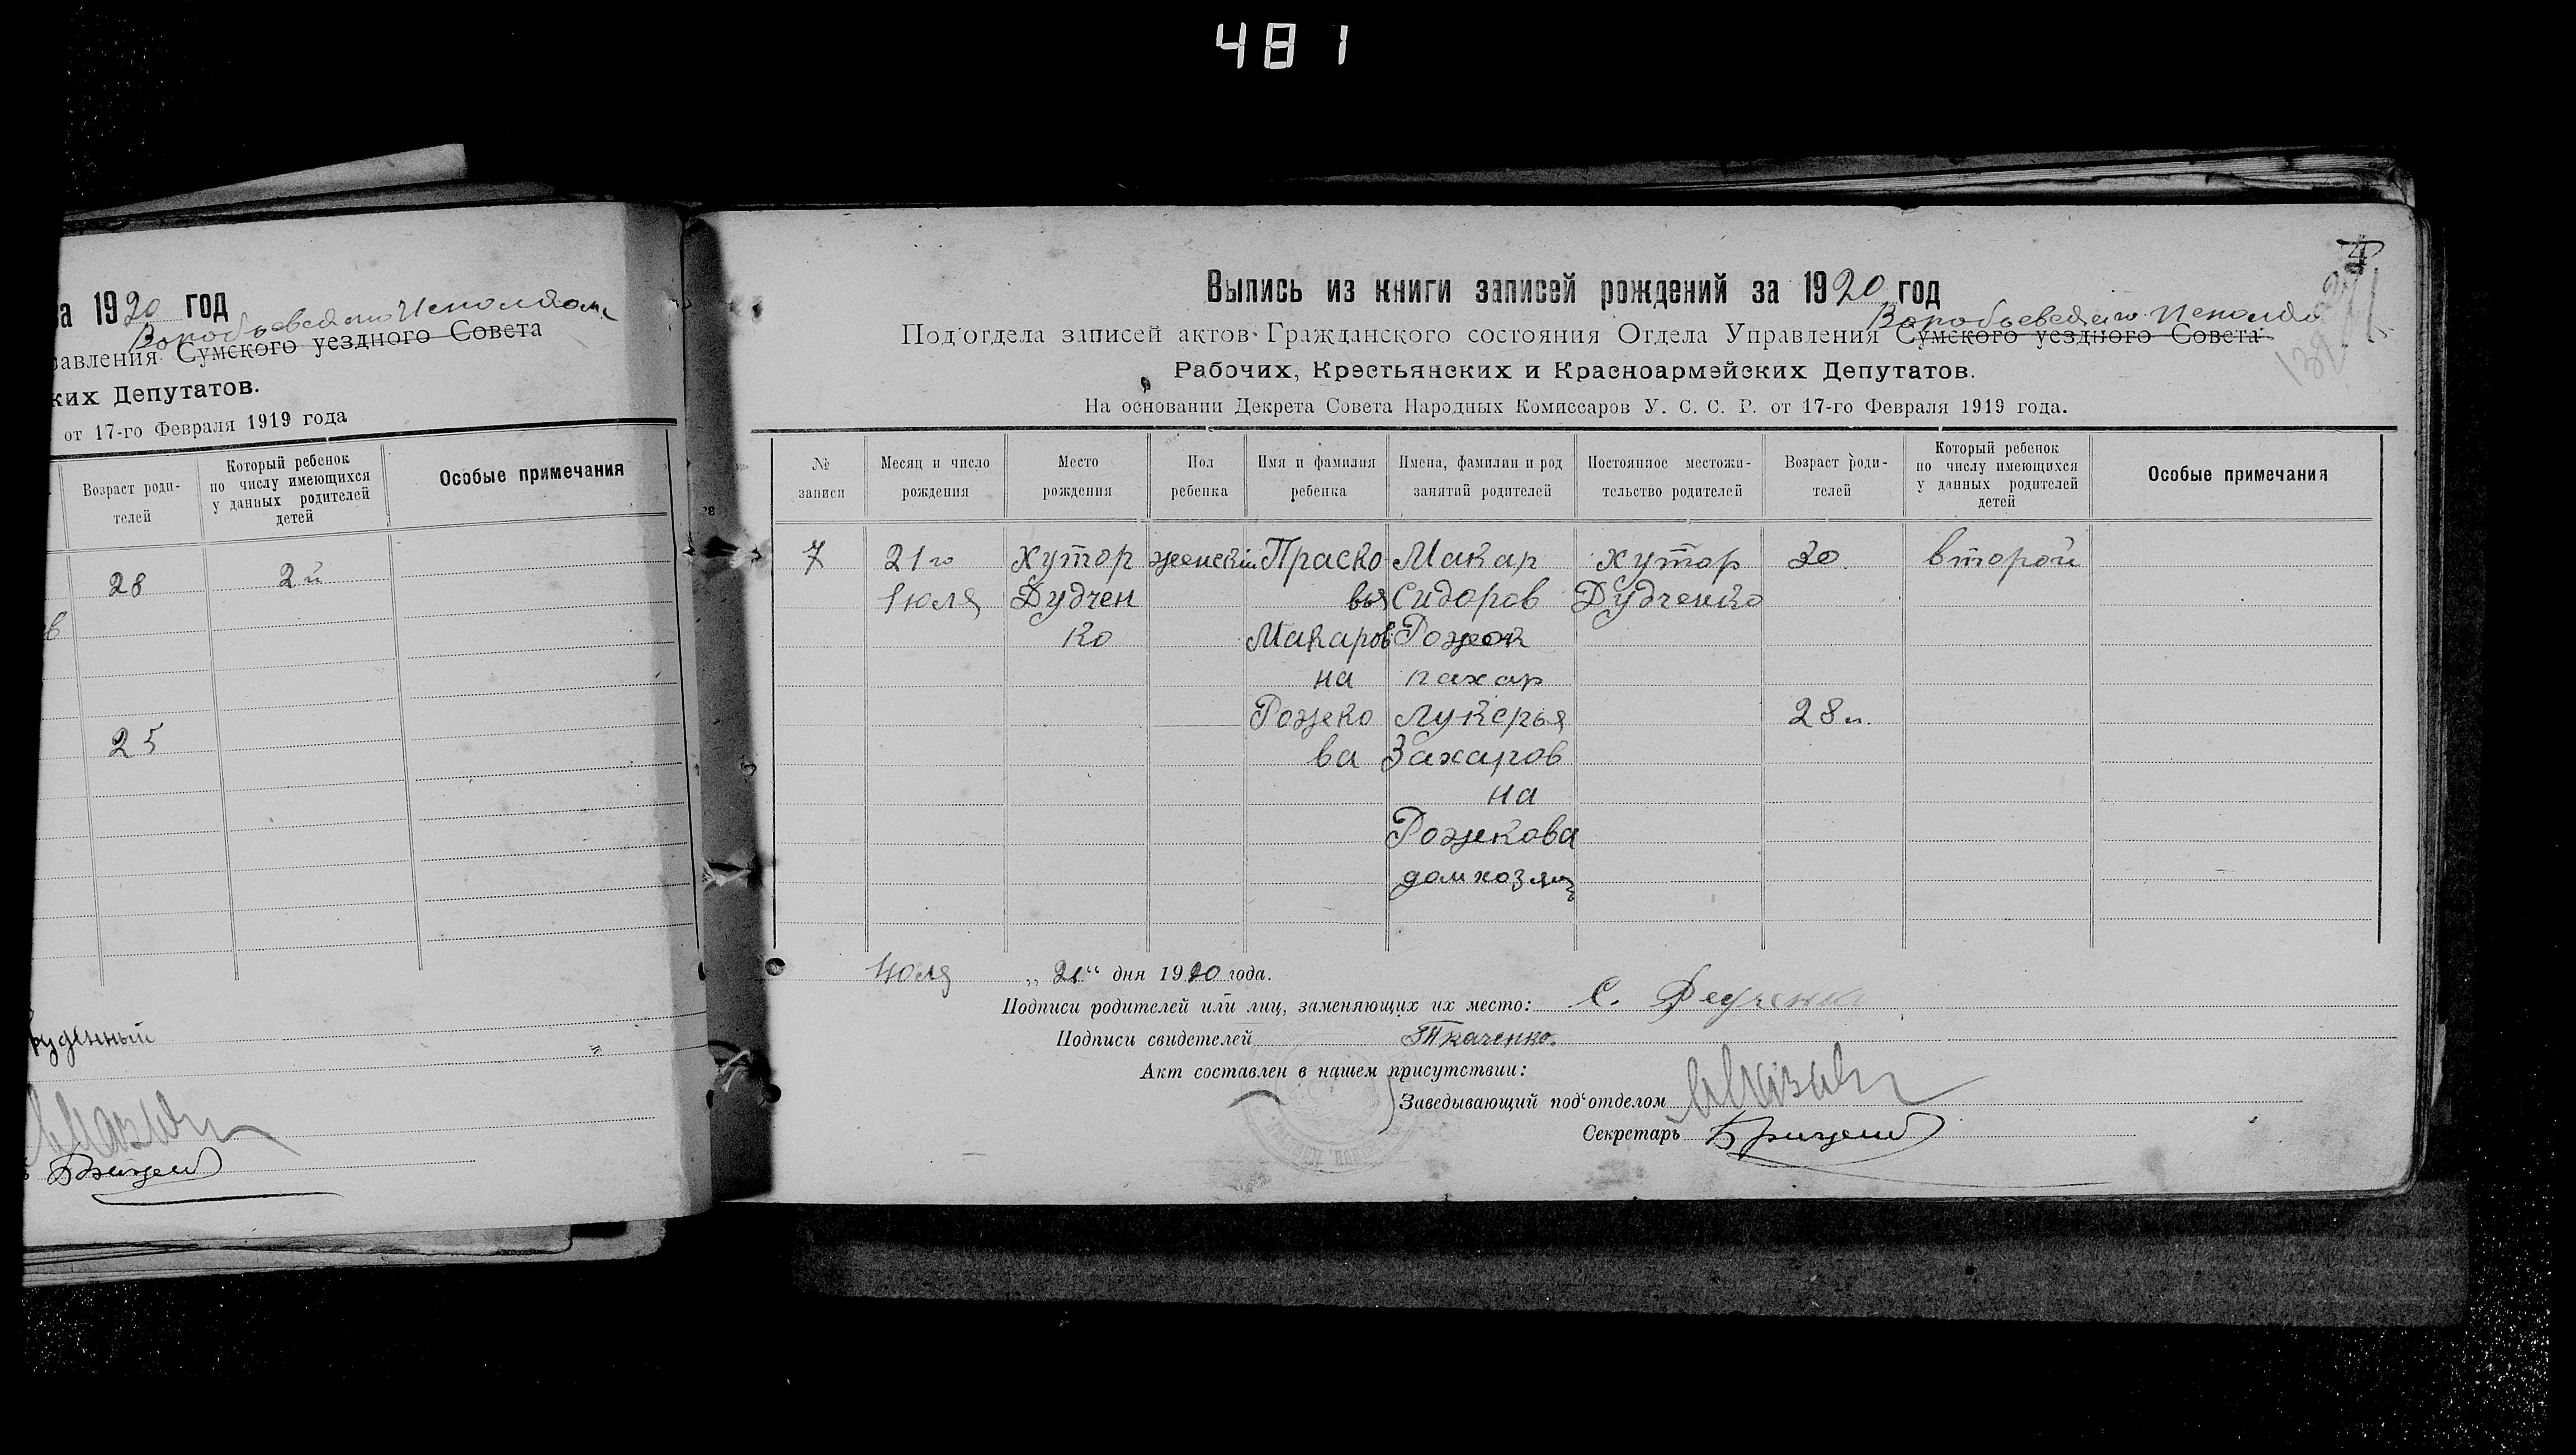 481
за 1920 год
Воробьевского Исполкома
равления Сумского уездного Совета
ких Депутатов.
от 17-го Февраля 1919 года
Возраст роди-
телей
Который ребенок
по числу имеющихся
у данных родителей
детей
Особые примечания
28
2й
25
Выпись из книги записей рождений за 1920 год
Воробьевского
Под'отдела записей актов Гражданского состояния Отдела Управления Сумского уездного Совета
Рабочих, Крестьянских и Красноармейских Депутатов.
На основании Декрета Совета Народных Комиссаров У. С. С. Р. от 17-го Февраля 1919 года.
№
записи
Месяц и число
рождения
Место
рождения
Пол
ребенка
Имя и фамилия
ребенка
Имена, фамилии и род
занятий родителей
Постоянное местожи-
тельство родителей
Возраст роди-
телей
Который ребенок
по числу имеющихся
у данных родителей
детей
Особые примечания
7 21го хутор женскій Праско Макар хутор 30 второй
Июля Дудчен вья Сидоров Дудченко
ко Макаров Рожок
на пахар
Рожко Лукерья 28л.
ва Захаров
на
Рожкова
домхозяи
Июля „21“ дня 1920 года.
Подписи родителей или лиц, заменяющих их место: С.
Подписи свидетелей Ткаченко
Акт составлен в нашем присутствии:
Заведывающий под'отделом
Секретарь